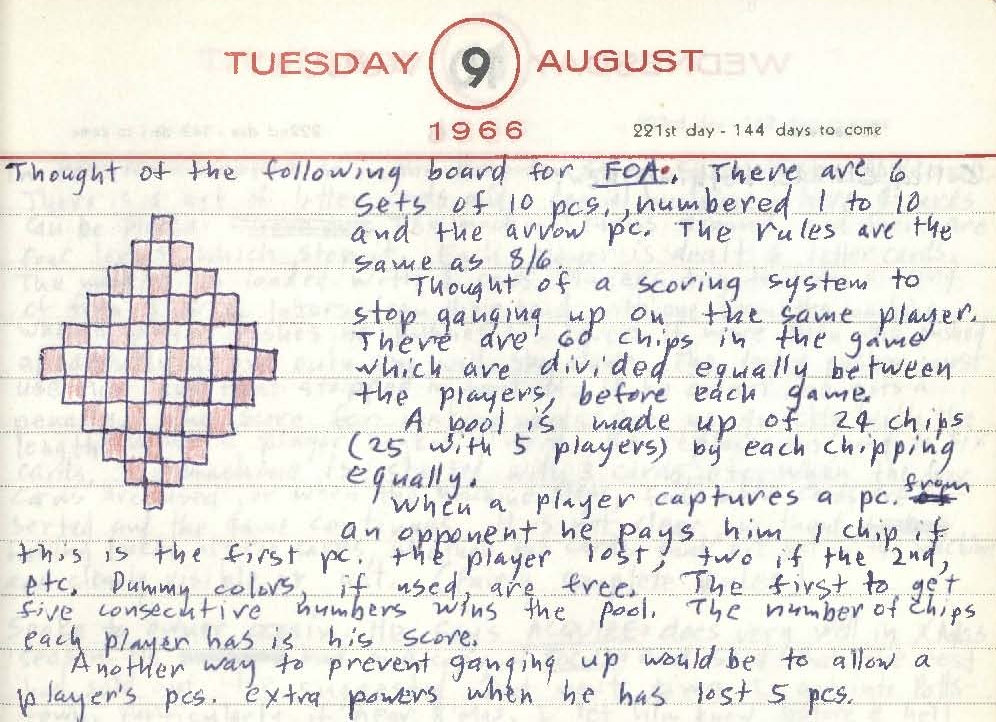 TUESDAY 9 AUGUST
1966 221st day - 144 days to come
Thought of the following board for FOA. There are 6
sets of 10 pcs., numbered 1 to 10
and the arrow pc. The rules are the
same as 8/6.
Thought of a scoring system to
stop ganging up on the same player.
There are 60 chips in the game
which are divided equally between
the players, before each game.
A pool is made up of 24 chips
(25 with 5 players) by each chipping
equally.
When a player captures a pc. from
an opponent he pays him 1 chip if
this is the first pc. the player lost, two if the 2nd,
etc. Dummy colors, if used, are free. The first to get
five consecutive numbers wins the pool. The number of chips
each player has is his score.
Another way to prevent ganging up would be to allow a
player's pcs. extra powers when he has lost 5 pcs.